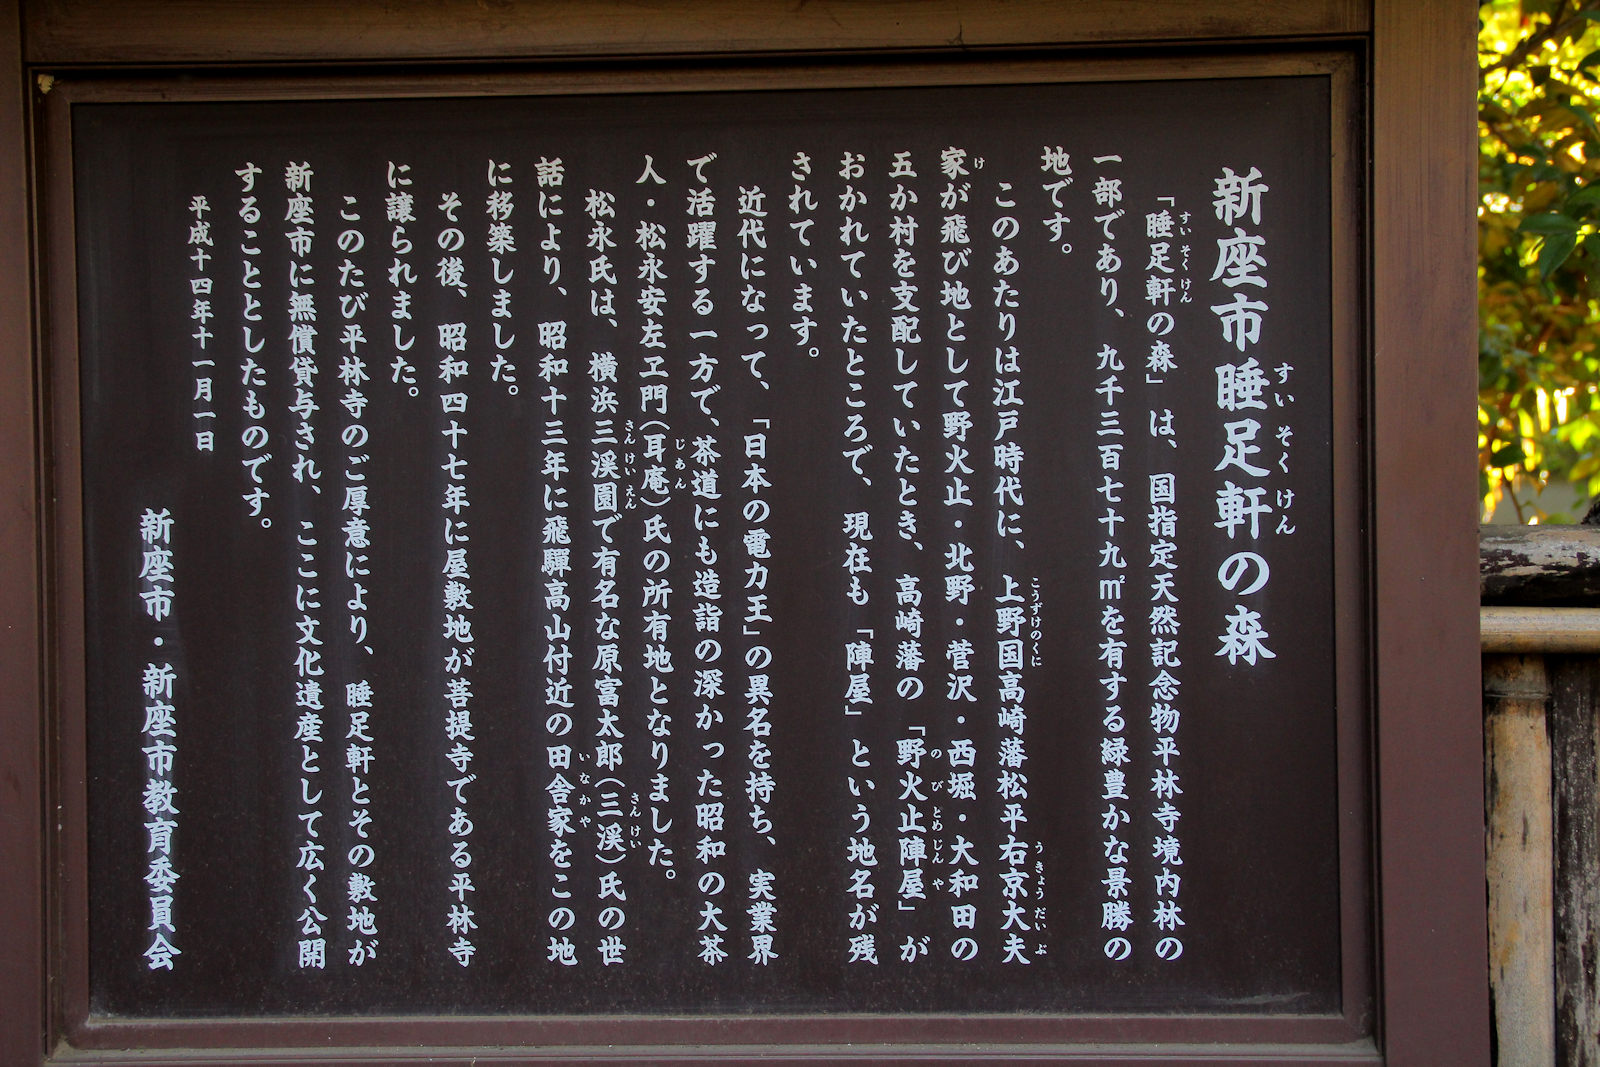 新座市睡足軒の森
「睡足軒の森」は、国指定天然記念物平林寺境内林の
一部であり、九千三百七十九㎡を有する緑豊かな景勝の
地です。
このあたりは江戸時代に、上野国高崎藩松平右京大夫
家が飛び地として野火止・北野・菅沢・西堀・大和田の
五か村を支配していたとき、高崎藩の「野火止陣屋」が
おかれていたところで、現在も「陣屋」という地名が残
されています。
近代になって、「日本の電力王」の異名を持ち、実業界
で活躍する一方で、茶道にも造詣の深かった昭和の大茶
人・松永安左ヱ門（耳庵）氏の所有地となりました。
松永氏は、横浜三渓園で有名な原富太郎（三渓）氏の世
話により、昭和十三年に飛驒高山付近の田舎家をこの地
に移築しました。
その後、昭和四十七年に屋敷地が菩提寺である平林寺
に譲られました。
このたび平林寺のご厚意により、睡足軒とその敷地が
新座市に無償貸与され、ここに文化遺産として広く公開
することとしたものです。
平成十四年十一月一日
新座市・新座市教育委員会